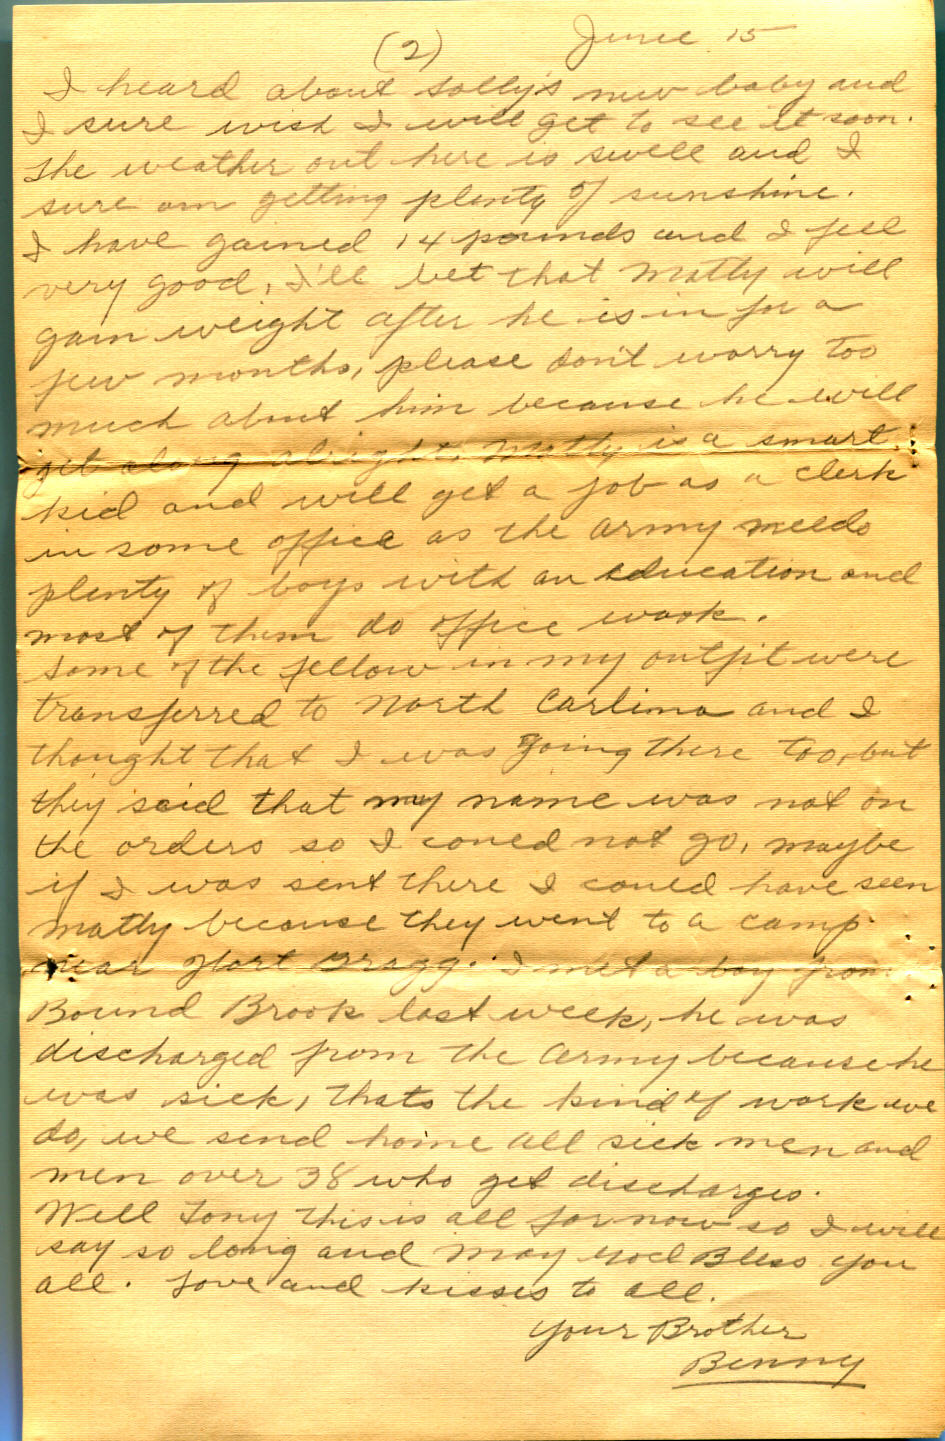 (2) June 15
I heard about Solly's new baby and
I sure wish I will get to see it soon.
The weather out here is swell and I
sure am getting plenty of sunshine.
I have gained 14 pounds and I feel
very good, I'll bet that Matty will
gain weight after he is in for a
few months, please don't worry too
much about him because he will
get along alright. Matty is a smart
kid and will get a job as a clerk
in some office as the army needs
plenty of boys with an education and
most of them do office work.
Some of the fellow in my outfit were
transferred to North Carlina and I
thought that I was going there too, but
they said that my name was not on
the orders so I coued not go, maybe
if I was sent there I coued have seen
Matty because they went to a camp
near Fort Bragg. I met a boy from
Bound Brook last week, he was
discharged from the army because he
was sick, thats the kind of work we
do, we send home all sick men and
men over 38 who get discharges.
Well Tony this is all for now so I will
say so long and may God Bless you
all. Love and kisses to all.
Your Brother
Benny